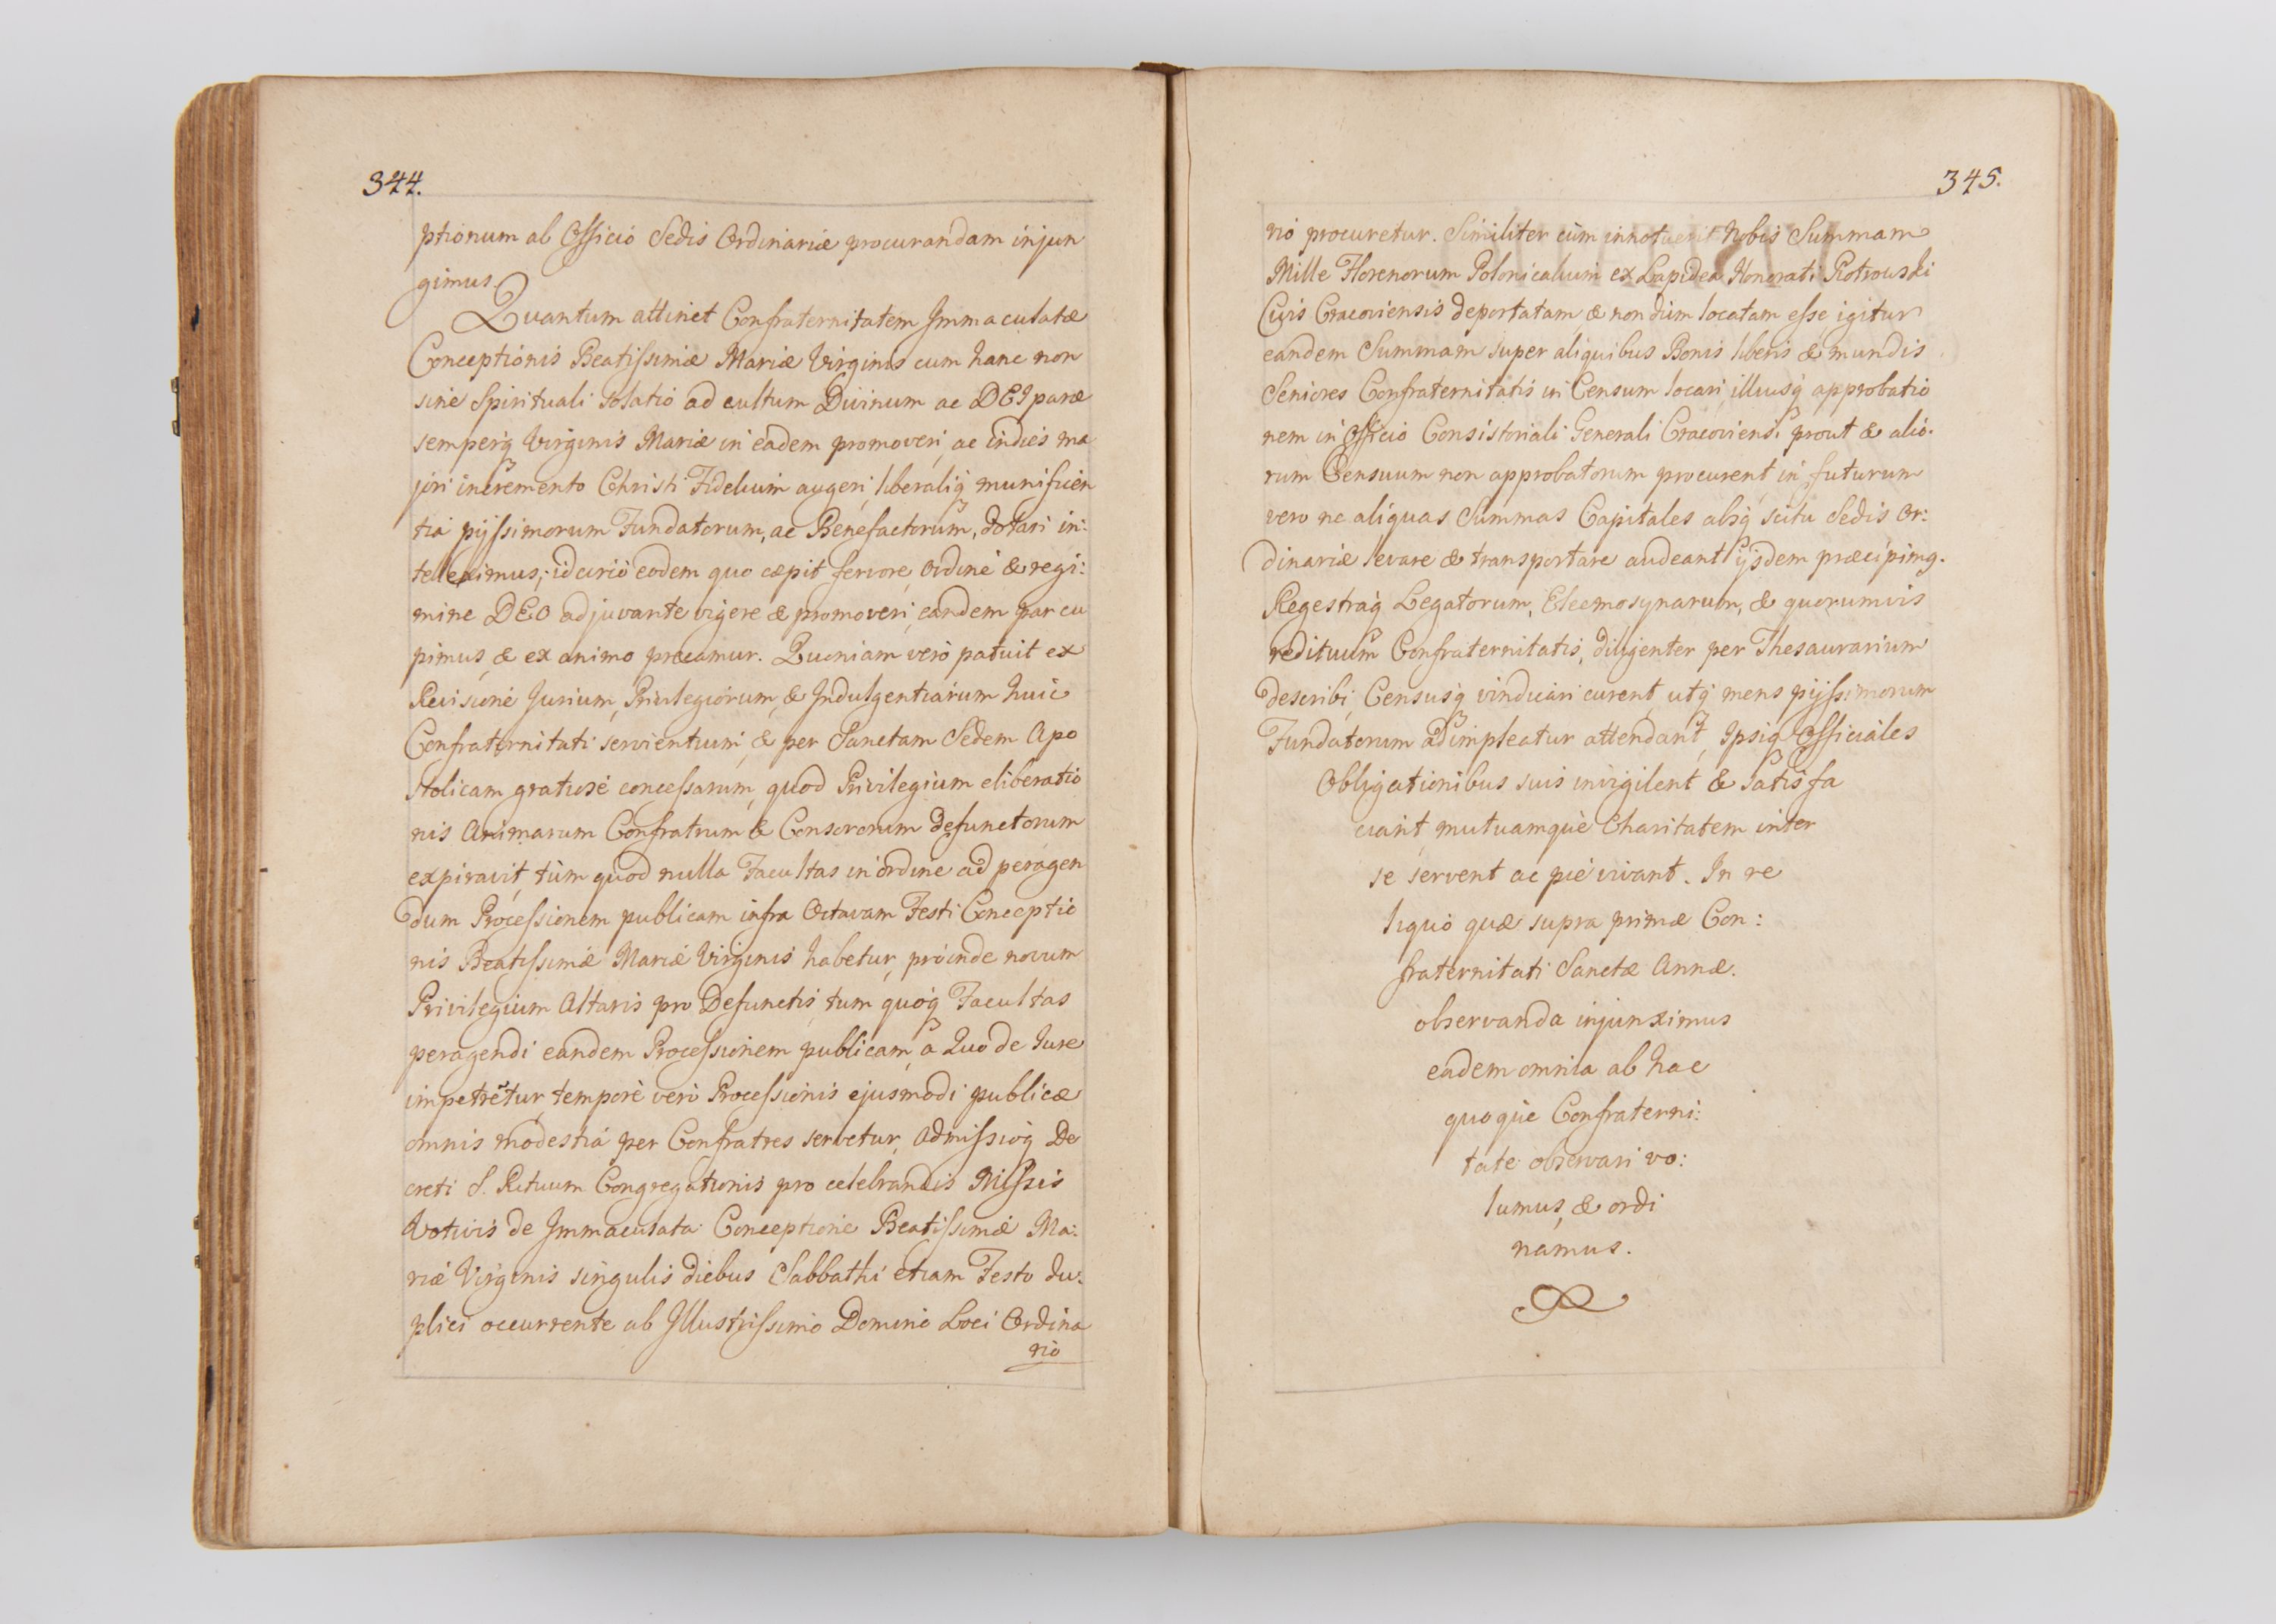 344.
ptionum ab Officio Sedis Ordinariæ procurandam injun
gimus.
Quantum attinet Confraternitatem Immaculatæ
Conceptionis Beatissimæ Mariæ Virginis cum hanc non
sine Spirituali solatio ad cultum Divinum ac DEIparæ
semperq Virginis Mariæ in eadem promoveri, ac indies ma
jori incremento Christi Fidelium augeri, liberaliq munificen
tia pijssimorum Fundatorum, ac Benefactorum, dotari in:
tellexerimus; idcirco eodem quo cæpit fervore, ordine & regi:
mine DEO adjuvante vigere & promoveri, eandem par cu
pimus, & ex animo precamur. Quoniam vero patuit ex
Revisione Jurium, Privilegiorum, & Indulgentiarum huic
Confraternitati servientium, & per Sanctam Sedem Apo
stolicam gratiose concessarum, quod Privilegium eliberatio
nis Animarum Confratrum & Consororum defunctorum
expiravit, tùm quod nulla Facultas in ordine ad peragen
dum Processionem publicam infra Octavam Festi Conceptio
nis Beatissimæ Mariæ Virginis habetur, proinde novum
Privilegium Altaris pro Defunctis, tum quoq Facultas
peragendi eandem Processionem publicam, a Quo de Jure
impetretur, tempore vero Processionis ejusmodi publicæ
omnis modestia per Confratres servetur, Admissioq De
creti S. Rituum Congregationis pro celebrandis Missis
Votivis de Immaculata Conceptione Beatissimæ Ma:
riæ Virginis singulis diebus Sabbathi etiam Festo du:
plici occurrente ab Illustrissimo Domino Loci Ordina
rio
345.
rio procuretur. Similiter cùm innotuerit Nobis Summam
Mille Florenorum Polonicalium ex Lapidea Honorati Piotrowski
Civis Cracoviensis deportatam, & non dum locatam esse, igitur
eandem Summam super aliquibus Bonis liberis & mundis
Seniores Confraternitatis in Censum locari, illiusq approbatio
nem in Officio Consistoriali Generali Cracoviensi prout & alio.
rum Censuum non approbatorum procurent, in futurum
vero ne aliquas Summas Capitales absq scitu Sedis Or:
dinariæ levare & transportare audeant ijsdem præcipimq.
Regestraq Legatorum, Eleemosynarum, & quorumvis
redituum Confraternitatis, diligenter per Thesaurarium
describi, Censusq vindicari curent, utq mens pijssimorum
Fundatorum adimpleatur attendant, Ipsiq Officiales
Obligationibus suis invigilent & satisfa
ciant, mutuamquè Charitatem inter
se servent ac piè vivant. In re
liquo quæ supra primæ Con:
fraternitati Sanctæ Annæ.
observanda injunximus
eadem omnia ab hac
quoquè Confraterni:
tate observari vo:
lumus, & ordi
namus.